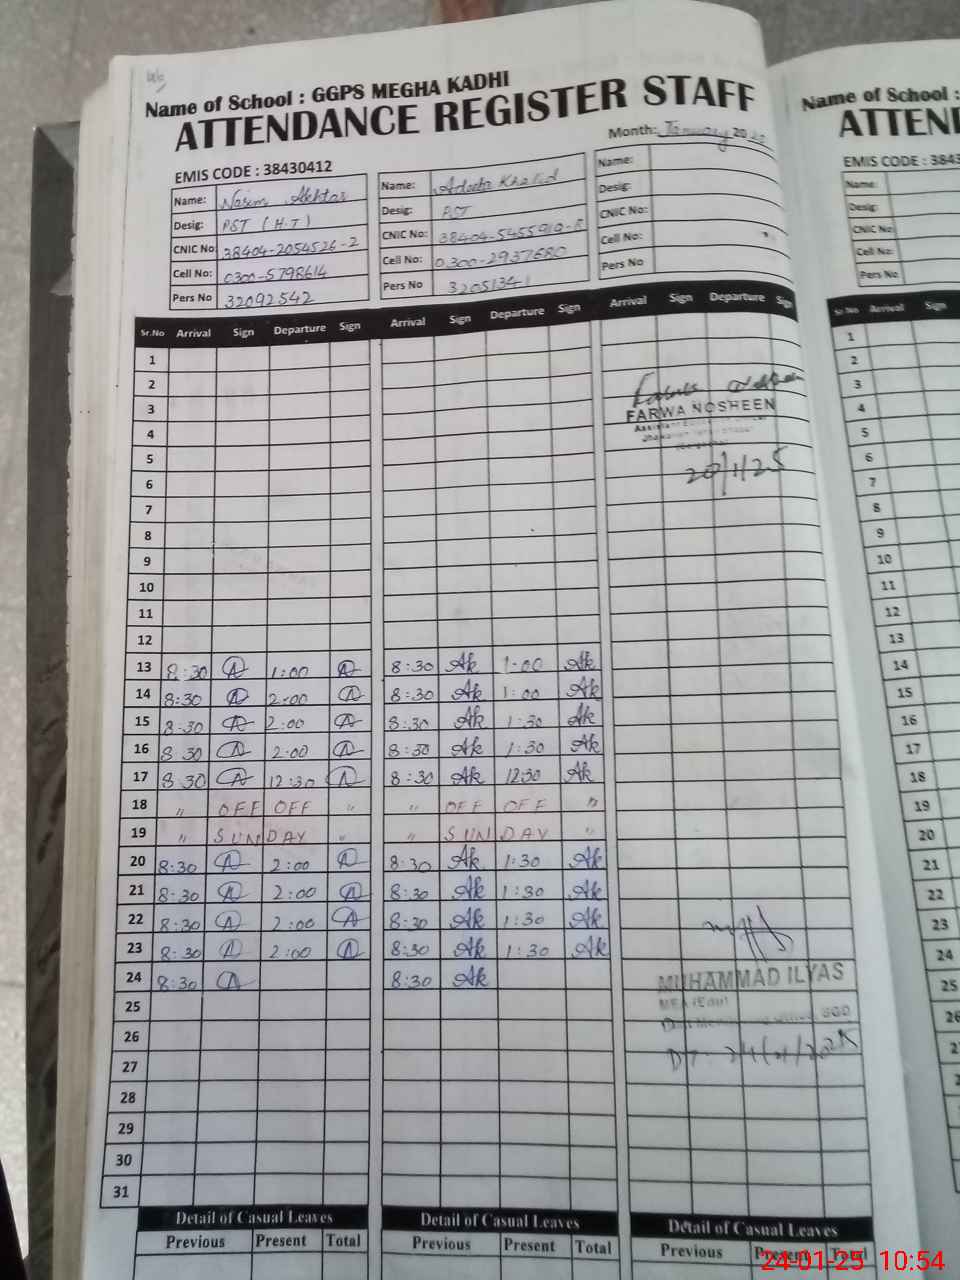 Name of School : GGPS MEGHA KADHI
ATTENDANCE REGISTER STAFF
Month: January 20
EMIS CODE : 38430412
Name: Nasim Akhtar
Desig: PST (H.T)
CNIC No: 38404-2054526-2
Cell No: 0300-5798614
Pers No 32092542
Name: Adeeba Khalid
Desig: PST
CNIC No: 38404-5455919-
Cell No: 0300-2937680
Pers No 32051341
Name:
Desig:
CNIC No:
Cell No:
Pers No
Sr.No Arrival Sign Departure Sign Arrival Sign Departure Sign Arrival Sign Departure Sign
1
2
3
FARWA NOSHEEN
4
5
20/1/25
6
7
8
9
10
11
12
13 8:30 A 1:00 A 8:30 Ak 1:00 Ak
14 8:30 A 2:00 A 8:30 Ak 1:00 Ak
15 8:30 A 2:00 A 8:30 Ak 1:30 Ak
16 8 30 A 2:00 A 8:30 Ak 1:30 Ak
17 8 30 A 12:30 A 8:30 Ak 12:30 Ak
18 " OFF OFF " " OFF OFF "
19 " SUNDAY " " SUNDAY "
20 8:30 A 2:00 A 8:30 Ak 1:30 Ak
21 8:30 A 2:00 A 8:30 Ak 1:30 Ak
22 8:30 A 2:00 A 8:30 Ak 1:30 Ak
23 8:30 A 2:00 A 8:30 Ak 1:30 Ak
24 8:30 A 8:30 Ak
MUHAMMAD ILYAS
25
MEA (Edu)
SGD
26
27
28
29
30
31
Detail of Casual Leaves Detail of Casual Leaves Detail of Casual Leaves
Previous Present Total Previous Present Total Previous Present Total
Name of School :
EMIS CODE : 384
Name:
Desig:
CNIC No:
Cell No:
Pers No
Sr.No Arrival Sign
1
2
3
4
5
6
7
8
9
10
11
12
13
14
15
16
17
18
19
20
21
22
23
24
25
26
24-01-25 10:54